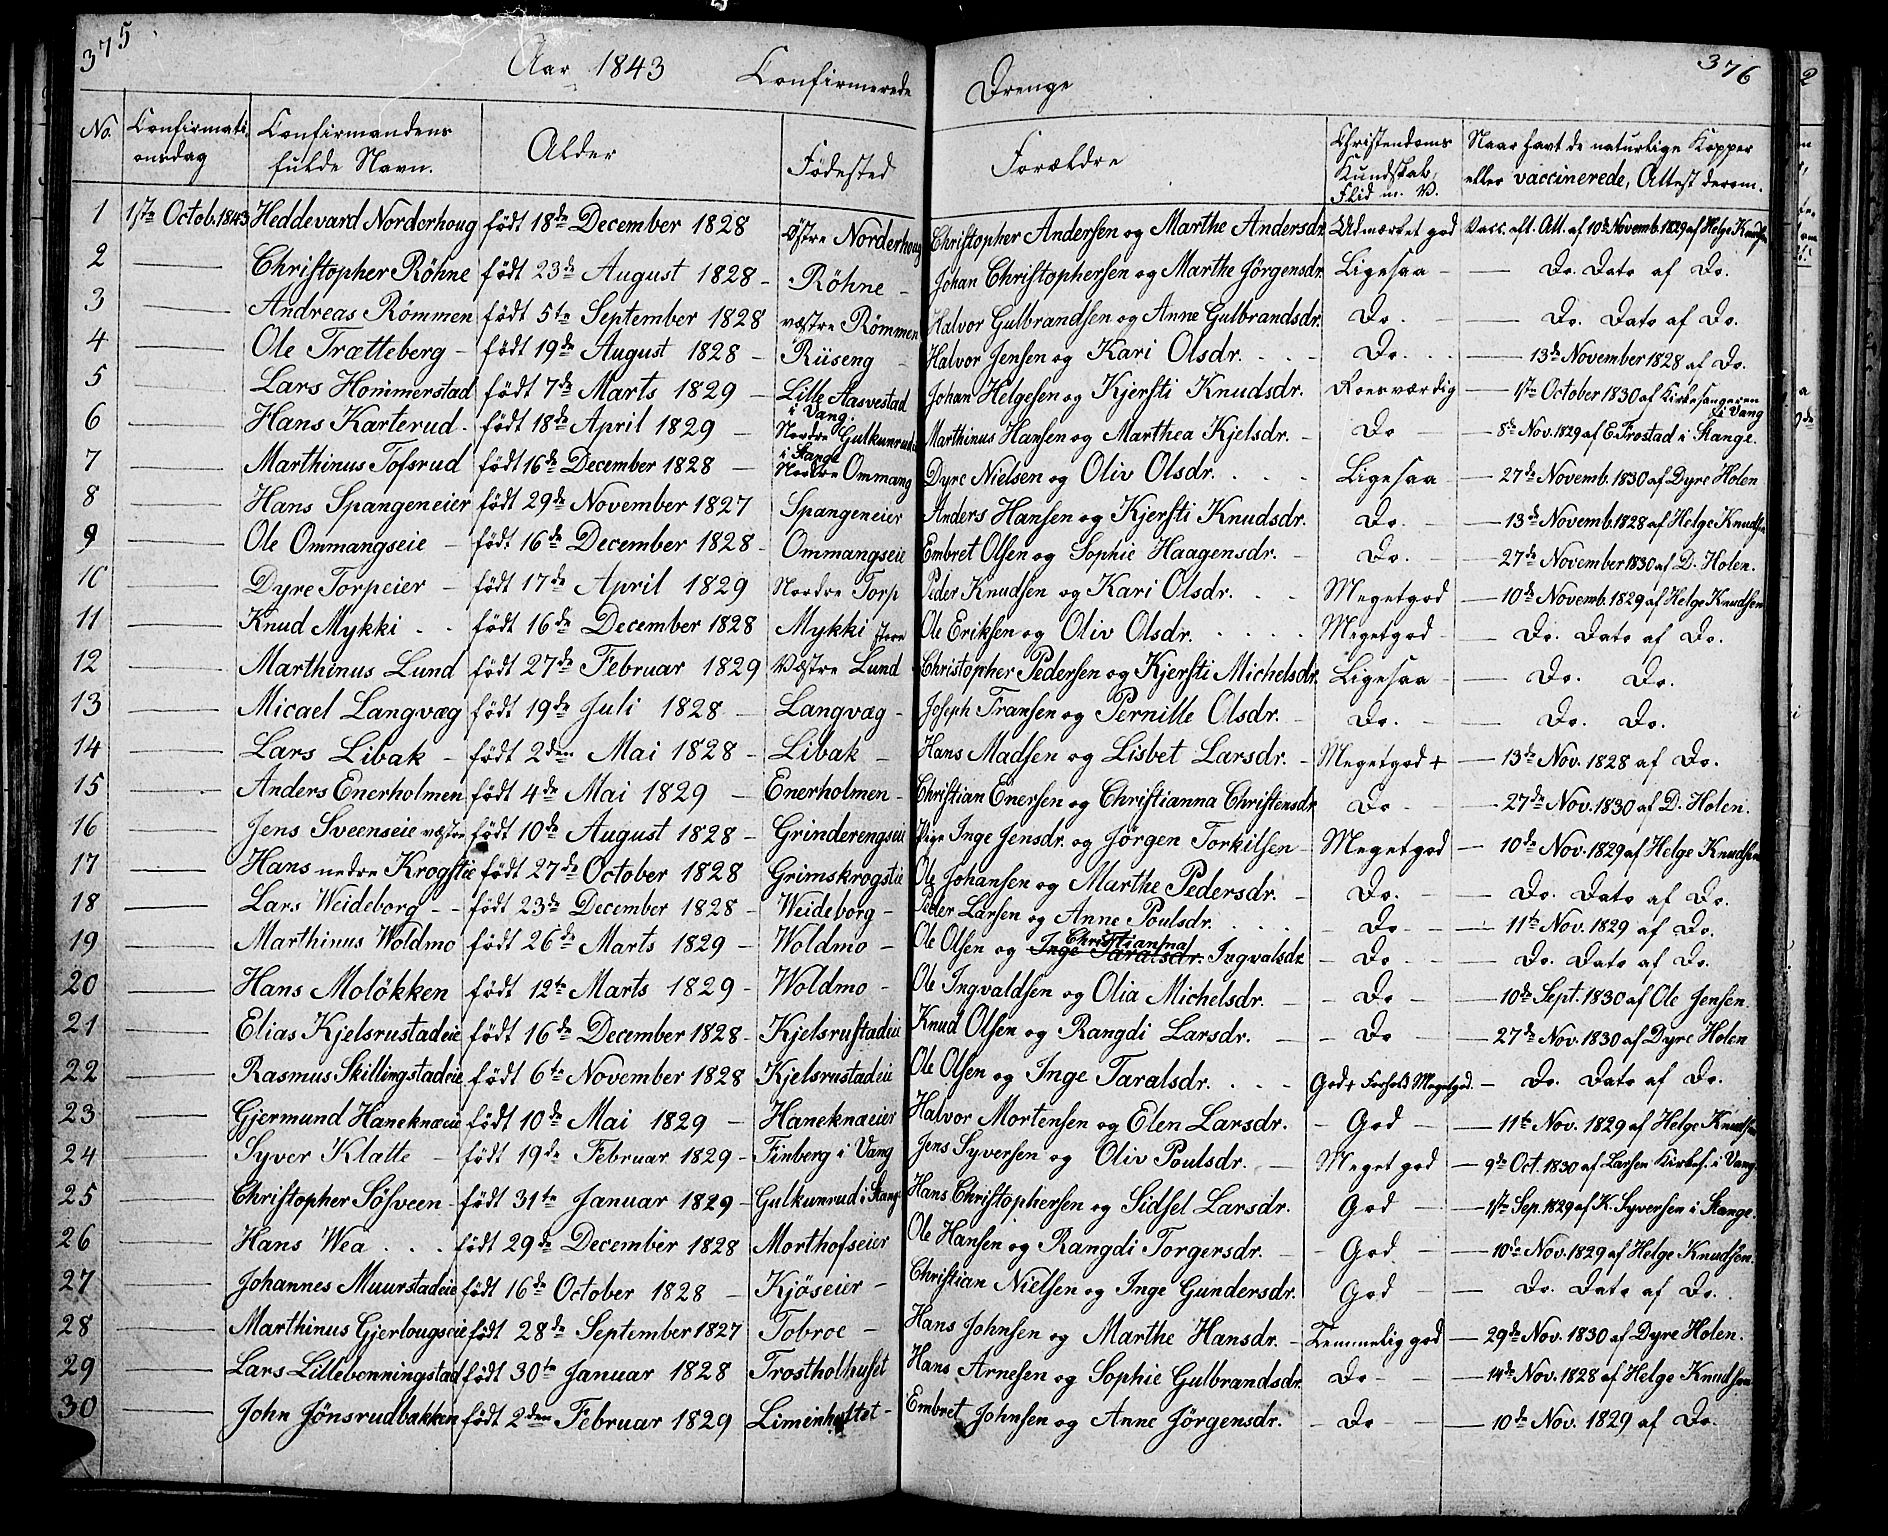 375
Aar 1843 Confirmerede Drenge
376
No. Confirmati onsdag Confirmandens fulde Navn. Alder Födested Forældre Christendoms Kundskab, Flid m. V. Naar havt de naturlige Kopper eller vaccinerede, Attest derom.
1 1ste Octob. 1843 Heddevard Norderhoug födt 18de December 1828 Östre Norderhoug Christopher Andersen og Marthe Andersdr. Udmærket god Vacc. eft. Att. af 10de Novemb. 1829 af Helge Knudsen
2 — Christopher Röhne födt 23de August 1828 - Röhne - Johan Christophersen og Marthe Jörgensdr. Ligesaa - — Do. Dato af Do.
3 — Andreas Römmen födt 5te September 1828 væstre Römmen Halvor Gulbrandsen og Anne Gulbrandsdr. Do. — Do. Dato af Do.
4 — Ole Trætteberg - födt 19de August 1828 - Rüseng - Halvor Jensen og Kari Olsdr. Do. — 13de November 1828 af Do.
5 — Lars Hommerstad födt 7de Marts 1829 - Lille Aasvestad i Vang. Johan Helgesen og Kjersti Knudsdr. Roesværdig — 1ste October 1830 af Kirkesangeren i Vang
6 — Hans Karterud - födt 18de April 1829 - Nordre Gulkunrud i Stange Marthinus Hansen og Marthea Kjelsdr. - Do — 8de Nov. 1829 af E. Frostad i Stange.
7 — Marthinus Tofsrud födt 16de December 1828 - Nordre Ommang Dyre Nielsen og Oliv Olsdr. Ligesaa — 27de Novemb. 1830 af Dyre Holen
8 — Hans Spangeneier födt 29de November 1827 Spangeneier Anders Hansen og Kjersti Knudsdr. Do. — 13de Novemb. 1828 af Helge Knudsen
9 — Ole Ommangseie - födt 16de December 1828 - Ommangseie Embret Olsen og Sophie Haagensdr. - Do. — 27de November 1830 af D. Holen.
10 — Dyre Torpeier - födt 17de April 1829 Nordre Torp Peder Knudsen og Kari Olsdr. Megetgod — 10de Novemb. 1829 af Helge Knudsen
11 — Knud Mykki födt 16de December 1828 Mykki Ole Eriksen og Oliv Olsdr. Megetgod — Do. Dato af Do.
12 — Marthinus Lund födt 27de Februar 1829 Væstre Lund Christopher Pedersen og Kjersti Michelsdr. Ligesaa — Do. Do.
13 — Micael Langvæg födt 19de Juli 1828 - Langvæg - Joseph Fransen og Pernille Olsdr. - Do. — Do. Do.
14 — Lars Libak - födt 2den Mai 1828 - Libak - Hans Madsen og Lisbet Larsdr. - Megetgod + — 13de Nov. 1828 af Do.
15 — Anders Enerholmen födt 4de Mai 1829 - Enerholmen - Christian Enersen og Christianna Christensdr Do — 27de Nov. 1830 af D. Holen.
16 — Jens Sveenseie væstre födt 10de August 1828 - Grinderengseie Pige Inge Jensdr. og Jörgen Torkilsen - Megetgod — 10de Nov. 1829 af Helge Knudsen
17 — Hans nedre Krogstie födt 27de October 1828 Grimskrogstie Ole Johansen og Marthe Pedersdr. - Do. — Do. Dato af Do.
18 — Lars Weideborg - födt 23de December 1828 - Weideborg - Peder Larsen og Anne Poulsdr. - Do - — 11te Nov. 1829 af Do.
19 — Marthinus Woldmo födt 26de Marts 1829 - Woldmo - Ole Olsen og Inge Taralsdr. Christianna Ingvalsdr. - Do — Do. Dato af Do.
20 — Hans Molökken födt 12te Marts 1829 - Woldmo - Ole Ingvaldsen og Olia Michelsdr. - Do — 10de Sept. 1830 af Ole Jensen.
21 — Elias Kjelsrustadeie födt 16de December 1828 - Kjelsrustadeie Knud Olsen og Rangdi Larsdr. - Do — 27de Nov. 1830 af Dyre Holen
22 — Rasmus Skillingstadeie födt 6te November 1828 Kjelsrustadeie Ole Olsen og Inge Taralsdr. God + Forhold Megetgod. — Do. Dato af Do.
23 — Gjermund Haneknæeie födt 10de Mai 1829 - Haneknæeier Halvor Mortensen og Elen Larsdr. - God — 11te Nov. 1829 af Helge Knudsen
24 — Syver Klatte - födt 19de Februar 1829 - Finberg i Vang Jens Syversen og Oliv Poulsdr. - Meget god — 9de Oct. 1830 af Larsen Kirkes. i Vang
25 — Christopher Sösveen - födt 31te Januar 1829 - Gulkunrud i Stange Hans Christophersen og Sidsel Larsdr. God — 1ste Sep. 1829 af K. Syversen i Stange.
26 — Hans Wea födt 29de December 1828 Morthofseier Ole Hansen og Rangdi Torgersdr. - God — 10de Nov. 1829 af Helge Knudsen.
27 — Johannes Muurstadeie födt 16de October 1828 - Kjöseier - Christian Nielsen og Inge Gundersdr. God — Do. Dato af Do.
28 — Marthinus Gjerlougseie födt 28de September 1827 Tobroe - Hans Johnsen og Marthe Hansdr. - Temmelig god — 29de Nov. 1830 af Dyre Holen.
29 — Lars Lillebonningstad födt 30te Januar 1828 Trostholhuset Hans Arnesen og Sophie Gulbrandsdr. Do - — 14de Nov. 1828 af Helge Knudsen
30 — John Jönsrudbakken födt 2den Februar 1829 Embret Johnsen og Anne Jörgensdr. - Do — 10de Nov. 1829 af Do.